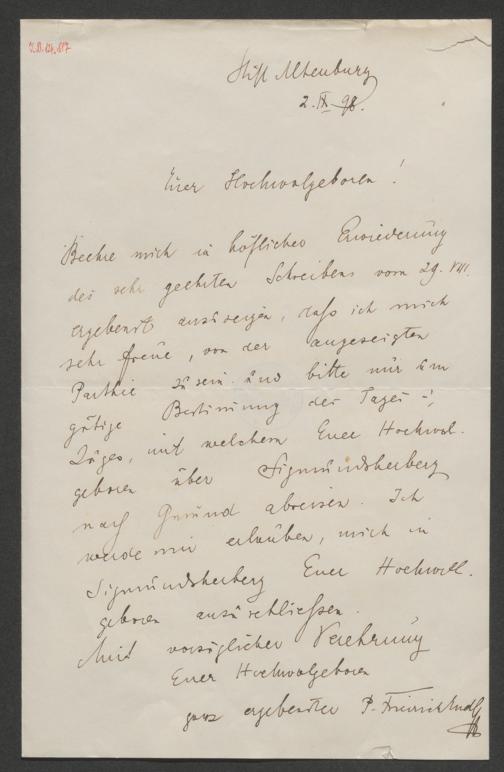 I.N. 124.817
Stift Altenburg
2. IX. 98.
Euer Hochwolgeboren!
Beehre mich in höflicher Erwiederung
des sehr geehrten Schreibens vom 29. VIII.
ergebenst anzuzeigen, daſs ich mich
sehr freue, von der angezeigten
Parthie zu sein und bitte nur um
gütige Bestimmung des Tages u.
Zuges, mit welchem Euer Hochwol-
geboren über Sigmundsherberg
nach Gmünd abreisen. Ich
werde mir erlauben, mich in
Sigmundsherberg Euer Hochwol-
geboren anzuschließen.
Mit vorzüglicher Verehrung
Euer Hochwolgeboren
ganz ergebenster P. Friedrich